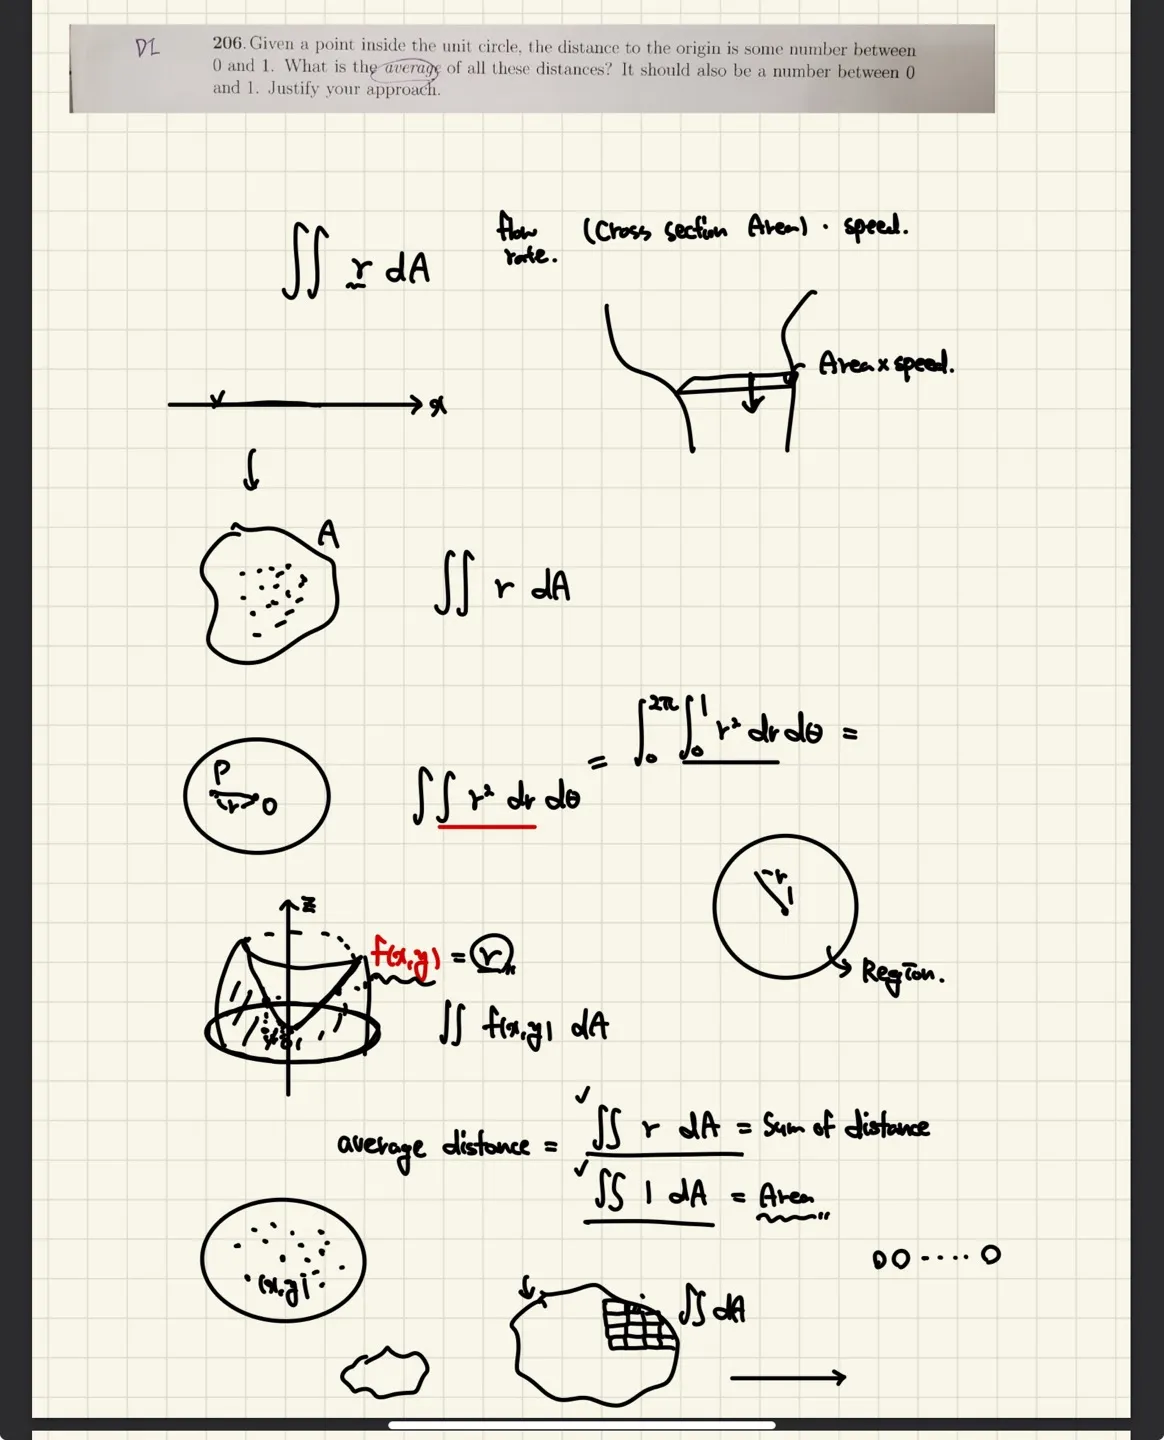 D2
206. Given a point inside the unit circle, the distance to the origin is some number between
0 and 1. What is the average of all these distances? It should also be a number between 0
and 1. Justify your approach.
flow rate. (Cross section Area) · speed.
∬ r dA
Area x speed.
x
A
∬ r dA
∫₀^2π ∫₀^1 r² dr dθ =
P
r
O
∬ r² dr dθ =
r
1
z
f(x,y) = r
Region.
∬ f(x,y) dA
average distance = ∬ r dA = Sum of distance
∬ 1 dA = Area
(x,y)
∬ dA